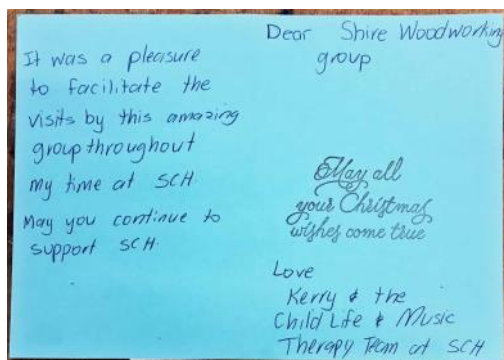 It was a pleasure
to facilitate the
visits by this amazing
group throughout
my time at SCH.
May you continue to
support SCH.
Dear Shire Woodworking
group
May all
your Christmas
wishes come true
Love
Kerry & the
Child Life & Music
Therapy Team at SCH